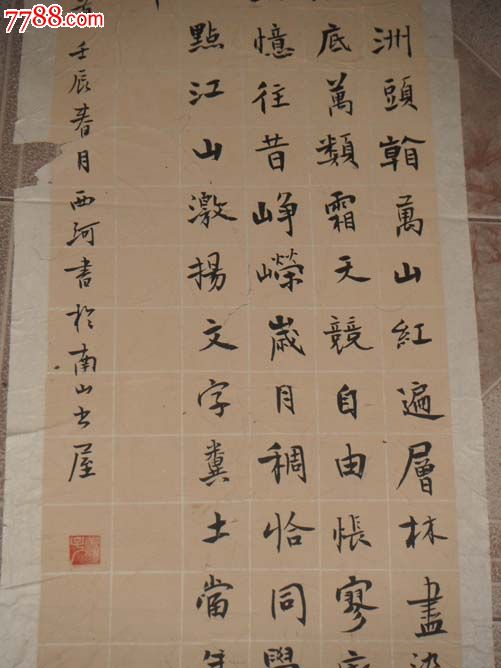 7788.com
洲頭看萬山紅遍層林盡染
底萬類霜天競自由悵寥廓
憶往昔崢嶸歲月稠恰同學
點江山激揚文字糞土當年
壬辰春月西河書於南山書屋